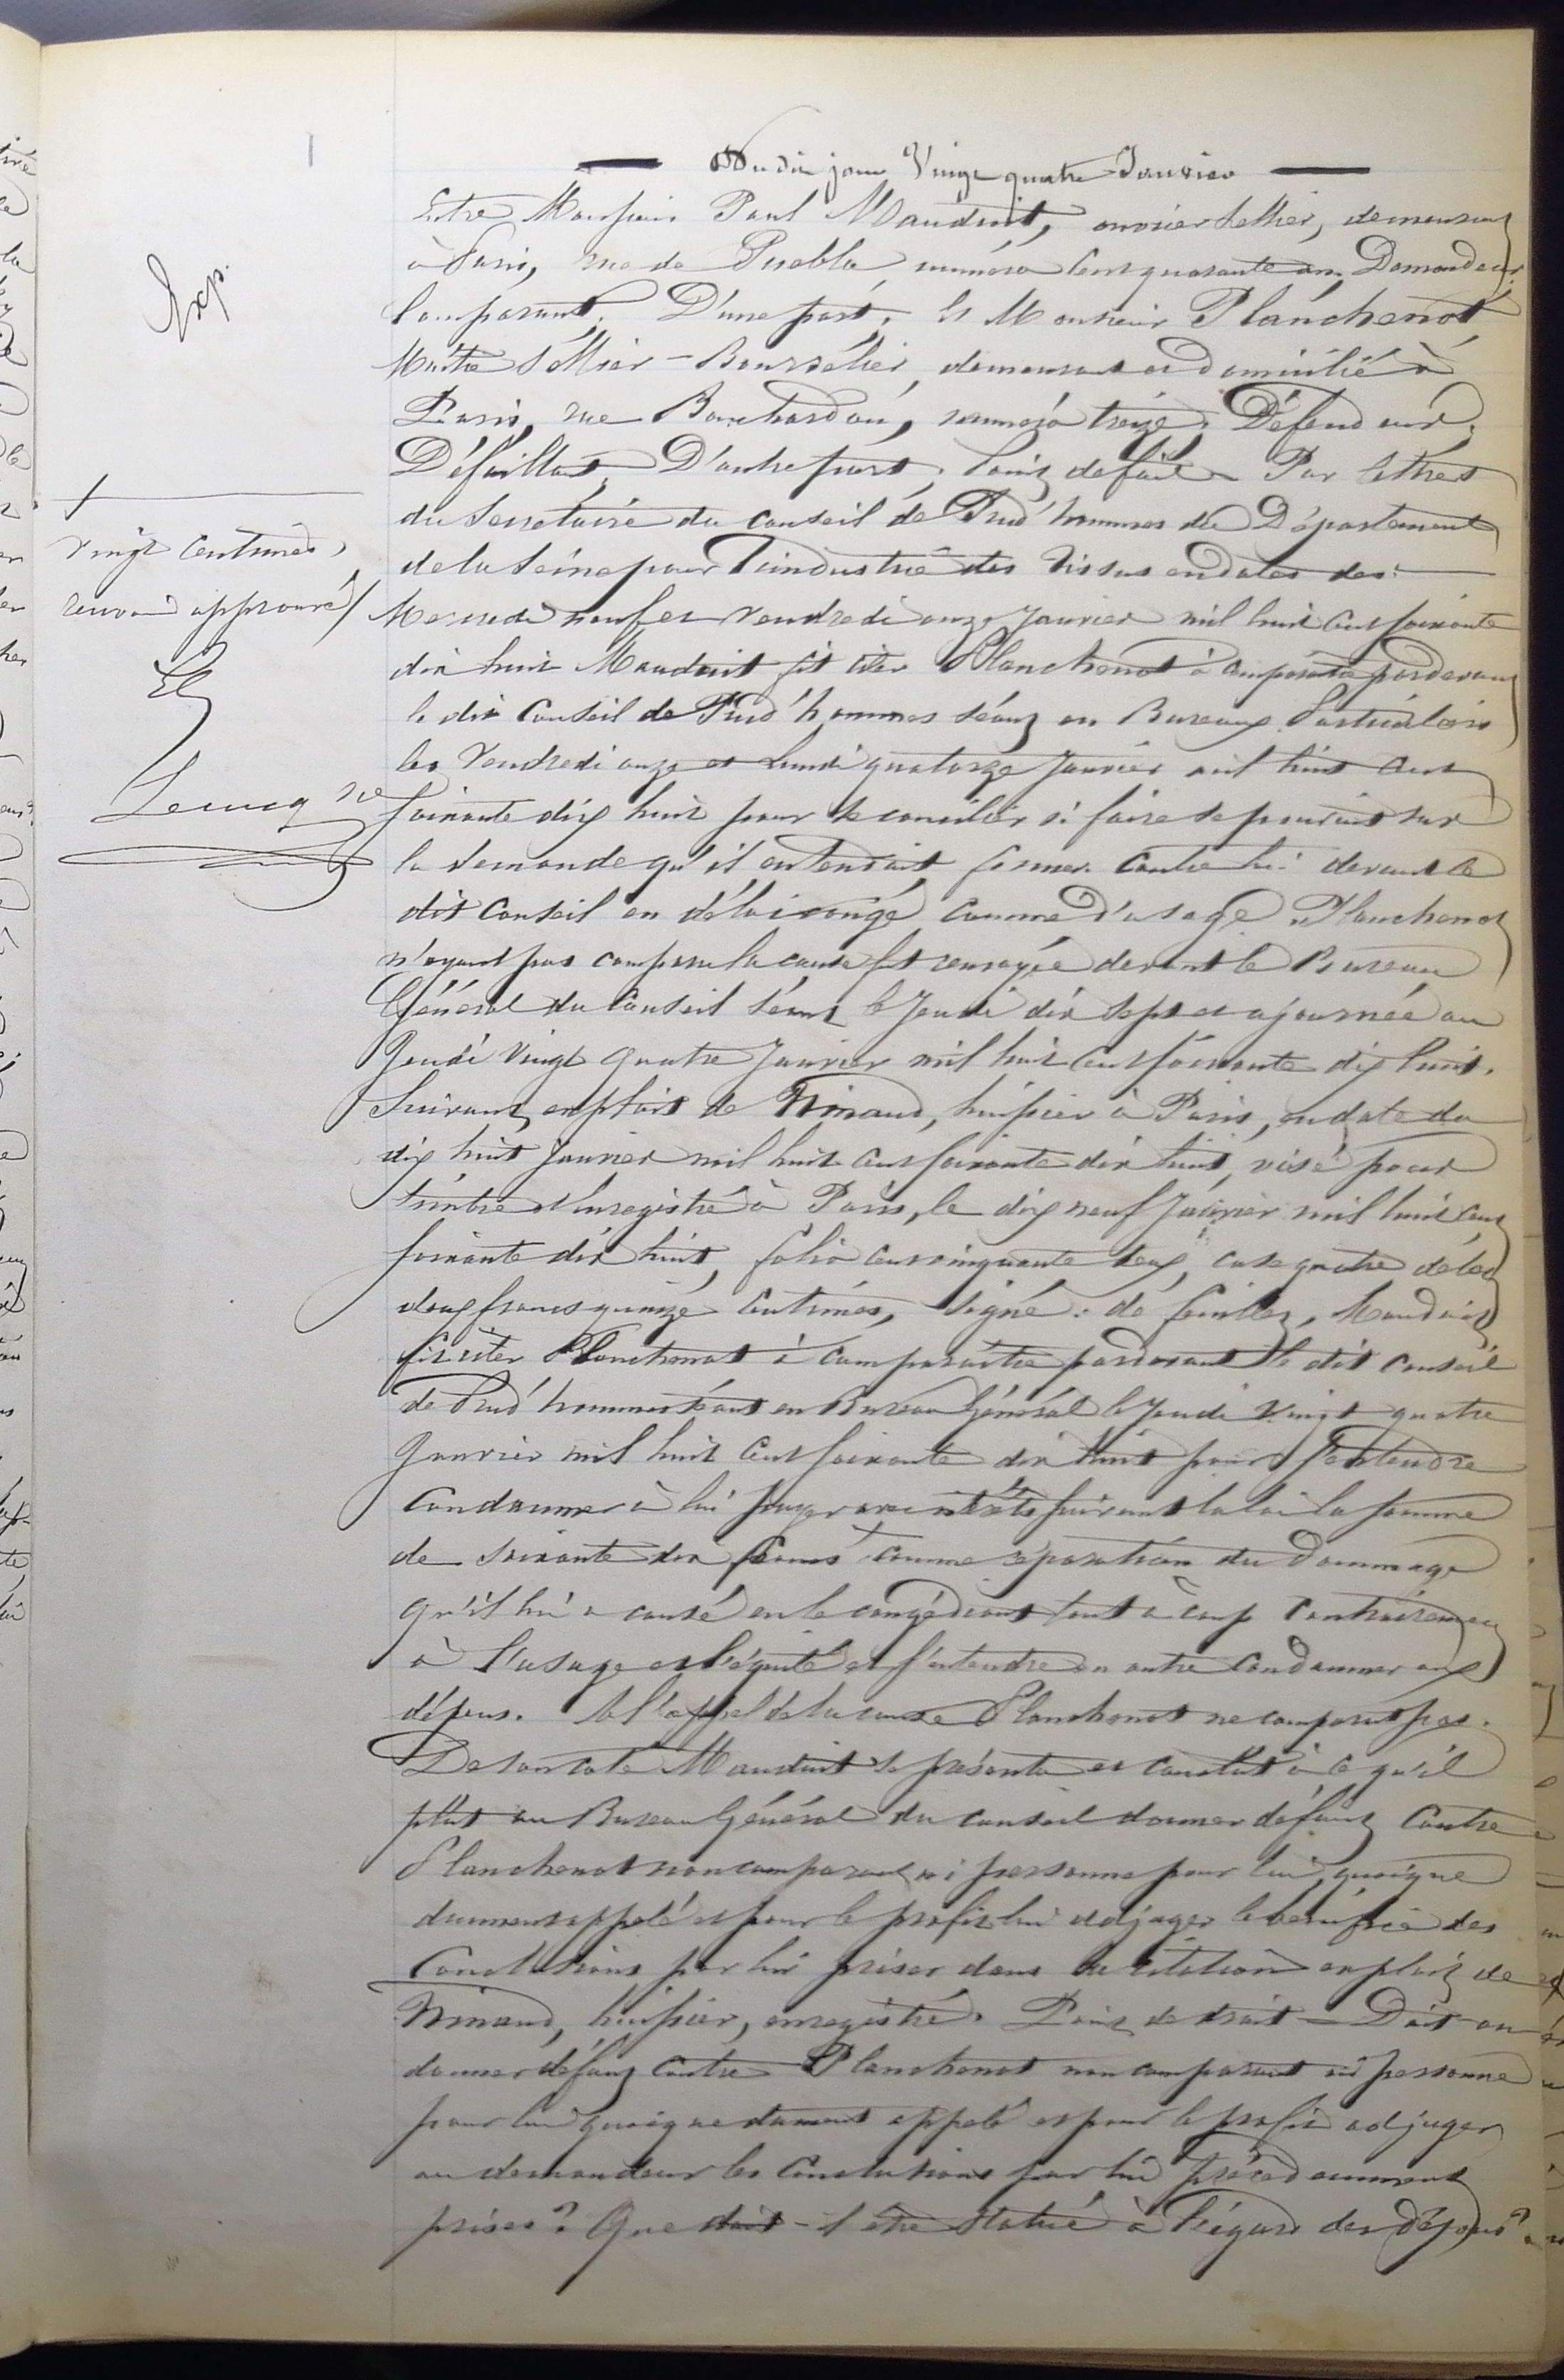 Du dit jour Vingt quatre Janvier
Entre Monsieur Paul Mauduit, ouvrier sellier, demeurant
à Paris, rue de Puebla, numéro cent quarante un, Demandeur,
Comparant, D'une part, Et Monsieur Planchenot
Maître Sellier-Bourrelier, demeurant et domicilié à
Paris, rue Bouchardon, numéro treize, Défendeur,
Défaillant, D'autre part, Point de fait - Par lettres
du secrétaire du Conseil de Prud'hommes du Département
de la Seine pour l'industrie des tissus en dates des
Mercredi neuf et Vendredi onze Janvier mil huit cent soixante
dix huit Mauduit fit citer Planchenot à comparaître pardevant
le dit Conseil de Prud'hommes séant en Bureau Particulier
les Vendredi onze et Lundi quatorze Janvier mil huit cent
soixante dix huit pour se concilier si faire se pouvait sur
la demande qu'il entendait former contre lui devant le
dit Conseil en comme d'usage. Planchenot
n'ayant pas comparu la cause fut renvoyée devant le Bureau
Général du Conseil séant le Jeudi dix sept et ajournée au
Jeudi Vingt quatre Janvier mil huit cent soixante dix huit.
Suivant exploit de huissier à Paris, en date du
dix huit Janvier mil huit cent soixante dix huit, visé pour
timbre et enregistré à Paris, le dix neuf Janvier mil huit cent
soixante dix huit, folio cent cinquante deux, case quatre débet
deux francs quinze centimes, signé: de Mauduit
fit citer Planchenot à comparaître pardevant le dit Conseil
de Prud'hommes séant en Bureau Général le Jeudi Vingt quatre
Janvier mil huit cent soixante dix huit pour s'entendre
condamner à lui payer avec intérêts suivant la loi la somme
de soixante dix francs + comme réparation du dommage
qu'il lui a causé en le congédiant tout à coup contrairement
à l'usage et l'équité et s'entendre en outre condamner aux
dépens. A l'appel de la cause Planchenot ne comparut pas.
De son coté Mauduit se présenta et conclut à ce qu'il
plût au Bureau Général du Conseil donner défaut contre
Planchenot non comparant ni personne pour lui quoique
dument appelé et pour le profit lui adjuger le bénéfice des
Conclusions par lui prises dans la citation exploit de
huissier, enregistré. Point de droit - Doit-on
donner défaut contre Planchenot non comparant ni personne
pour lui quoique dument appelé et pour le profit adjuger
au demandeur les Conclusions par lui précédemment
prises? Que doit-il être statué à l'égard des dépens?
Exp.
+
vingt centimes,
renvoi approuvé
Lecucq